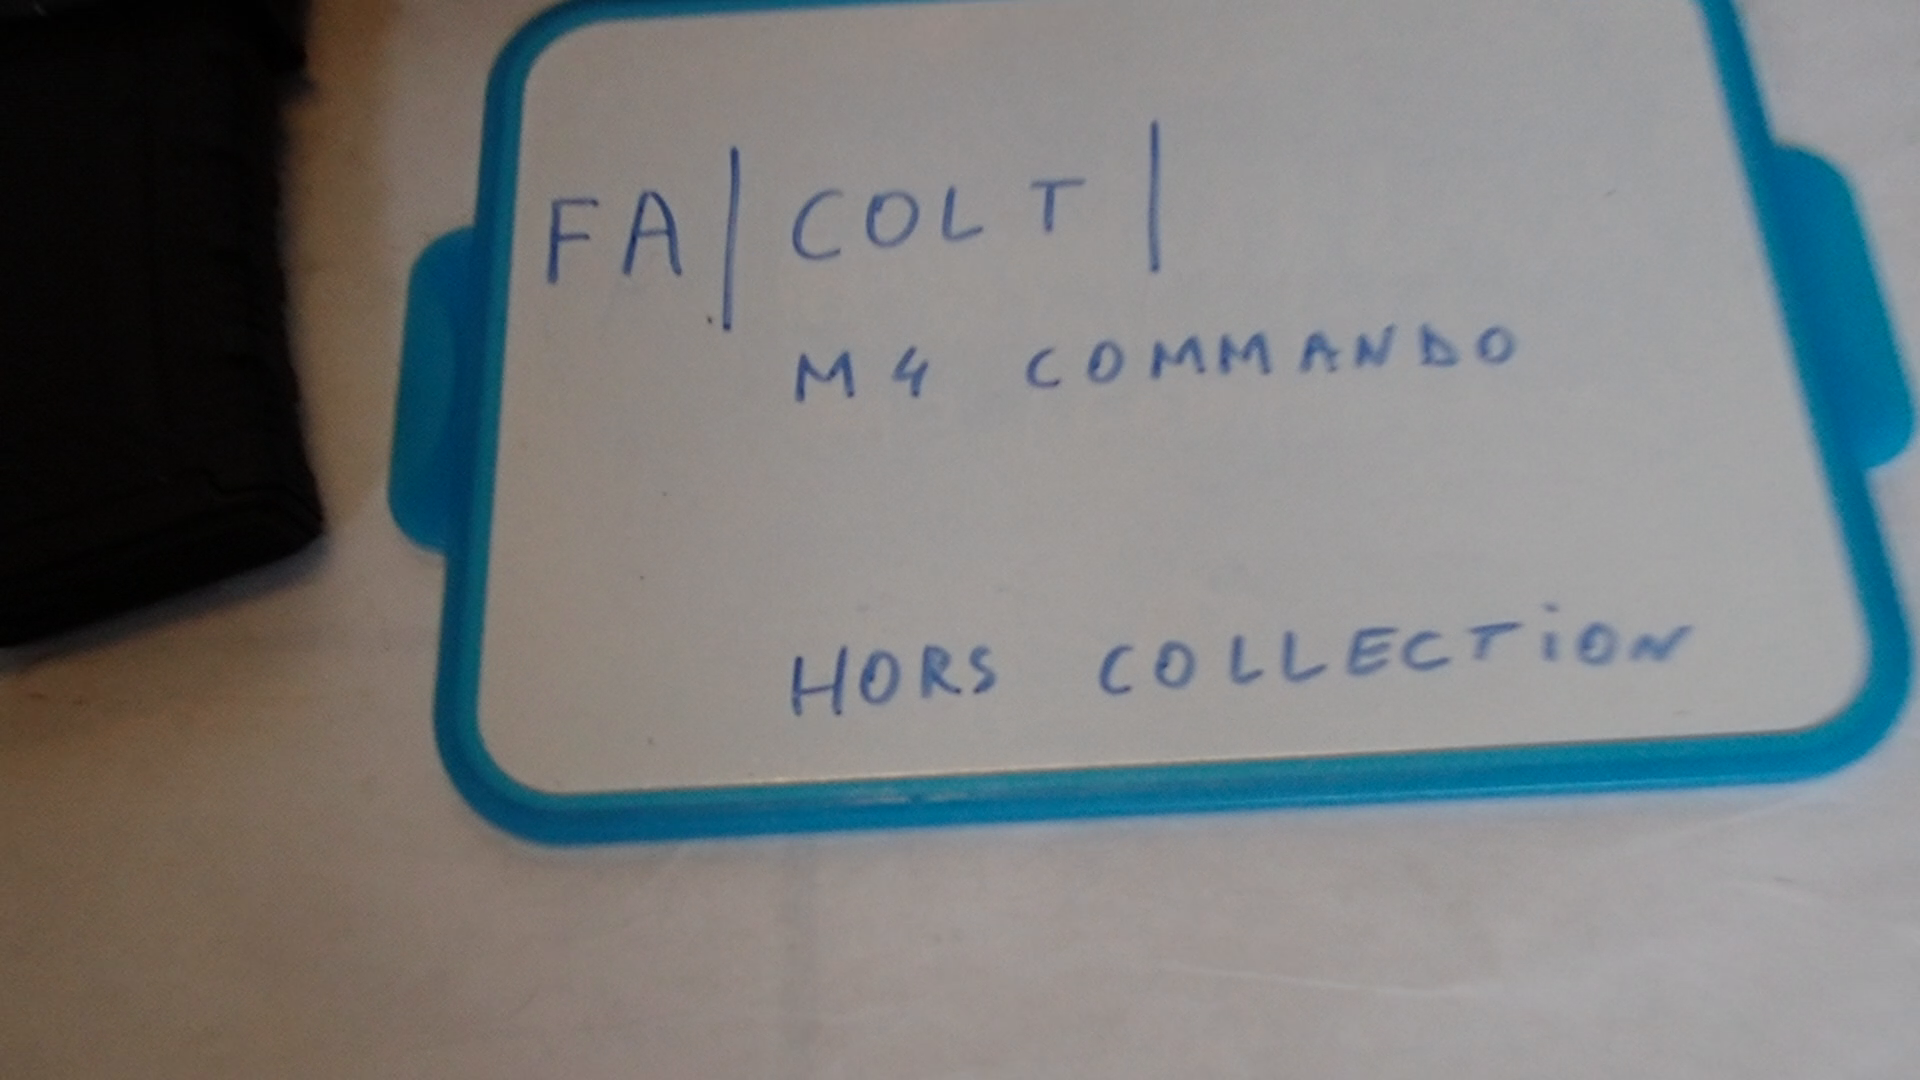 FA | COLT |
M4 COMMANDO
HORS COLLECTION